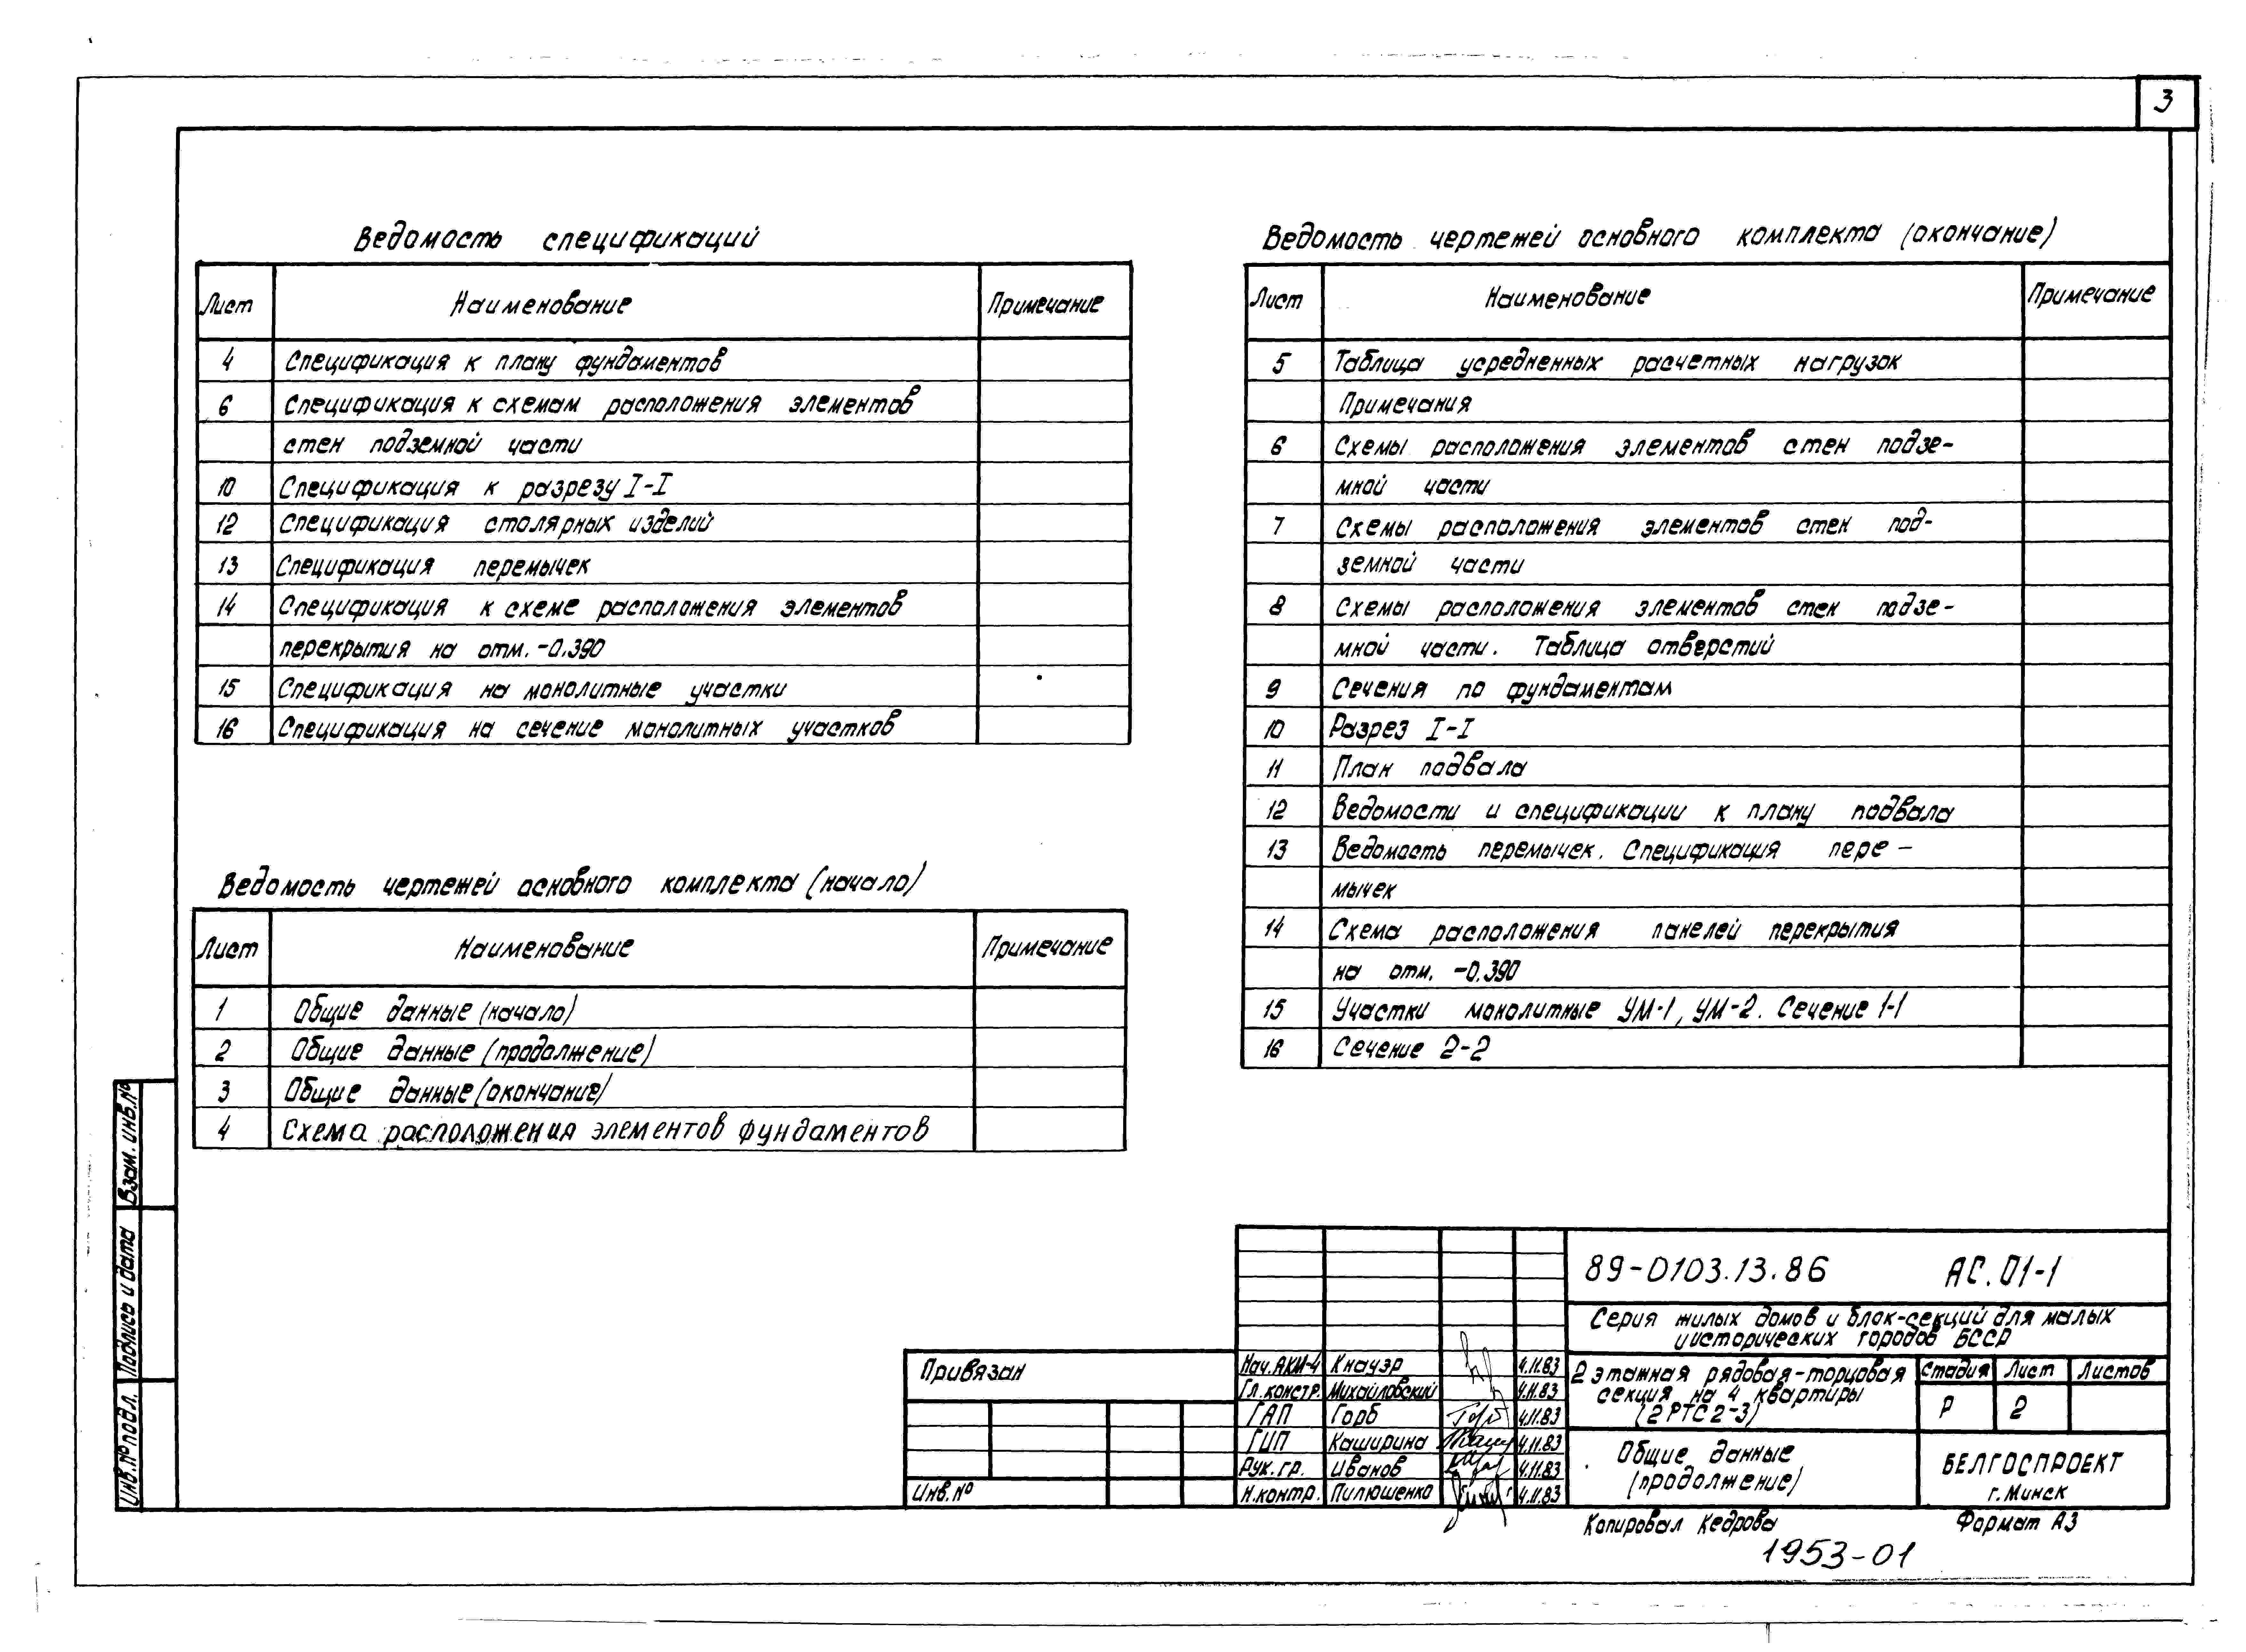 3
Ведомость спецификаций
Лист Наименование Примечание
4 Спецификация к плану фундаментов
6 Спецификация к схемам расположения элементов
стен подземной части
10 Спецификация к разрезу I-I
12 Спецификация столярных изделий
13 Спецификация перемычек
14 Спецификация к схеме расположения элементов
перекрытия на отм. -0.390
15 Спецификация на монолитные участки
16 Спецификация на сечение монолитных участков
Ведомость чертежей основного комплекта (начало)
Лист Наименование Примечание
1 Общие данные (начало)
2 Общие данные (продолжение)
3 Общие данные (окончание)
4 Схема расположения элементов фундаментов
Ведомость чертежей основного комплекта (окончание)
Лист Наименование Примечание
5 Таблица усредненных расчетных нагрузок
Примечания
6 Схемы расположения элементов стен подзе-
мной части
7 Схемы расположения элементов стен под-
земной части
8 Схемы расположения элементов стен подзе-
мной части. Таблица отверстий
9 Сечения по фундаментам
10 Разрез I-I
11 План подвала
12 Ведомости и спецификации к плану подвала
13 Ведомость перемычек. Спецификация пере-
мычек
14 Схема расположения панелей перекрытия
на отм. -0.390
15 Участки монолитные УМ-1, УМ-2. Сечение 1-1
16 Сечение 2-2
Взам. инв.№
Подпись и дата
Инв.№ подл.
Привязан
Инв.№
Нач.АКМ-4 Кнауэр 4.11.83
Гл.констр. Михайловский 4.11.83
ГАП Горб 4.11.83
ГИП Каширина 4.11.83
Рук.гр. Иванов 4.11.83
Н.контр. Пилюшенко 4.11.83
89-0103.13.86 АС.01-1
Серия жилых домов и блок-секций для малых
и исторических городов БССР
2 этажная рядовая-торцовая
секция на 4 квартиры
(2РТС2-3)
Стадия Лист Листов
Р 2
Общие данные
(продолжение)
БЕЛГОСПРОЕКТ
г. Минск
Копировал Кедрова Формат А3
1953-01